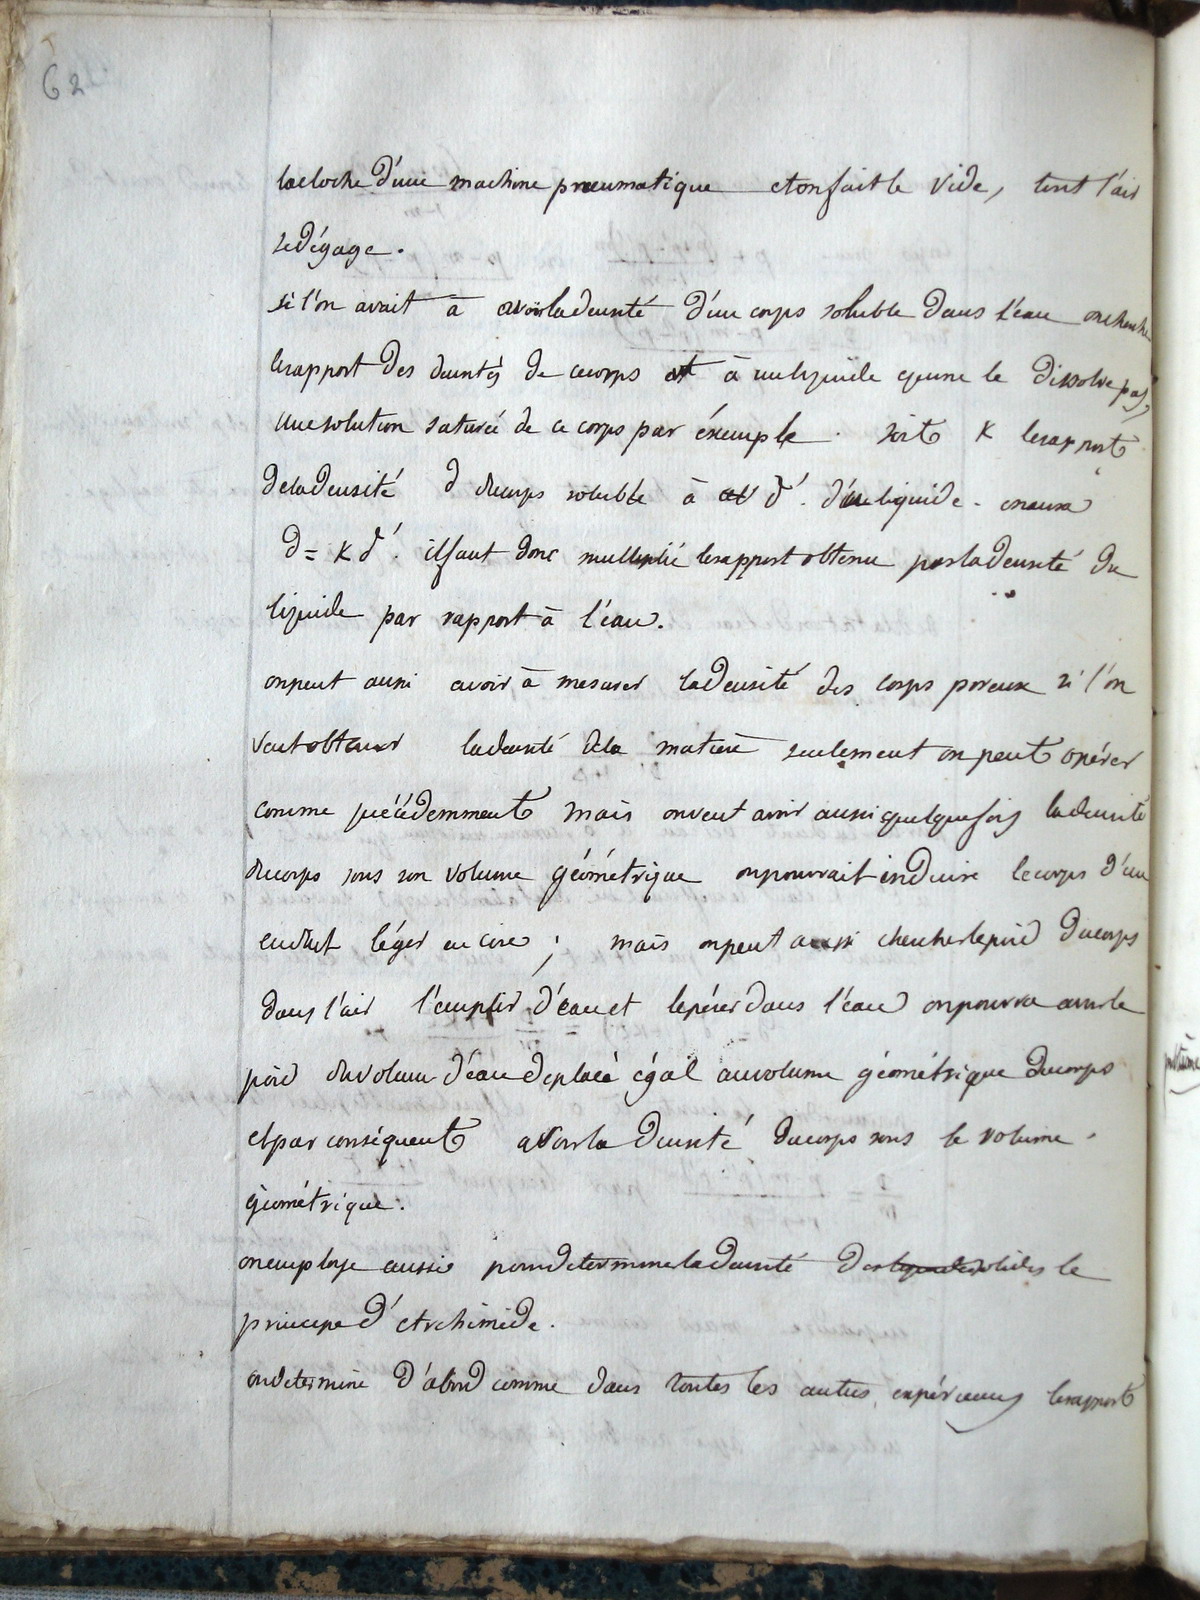 62
la cloche d'une machine pneumatique et on fait le vide, tout l'air
se dégage.
si l'on avait à avoir la densité d'un corps soluble dans l'eau on cherche
le rapport des densités de ce corps et à un liquide qui ne le dissolve pas,
une solution saturée de ce corps par éxemple. soit K le rapport
de la densité d du corps soluble à d'. d'un liquide. on aura
d = K d'. il faut donc multiplié le rapport obtenu par la densité du
liquide par rapport à l'eau.
on peut aussi avoir à mesurer la densité des corps poreux si l'on
veut obtenir la densité de la matière seulement on peut opérer
comme précédemment mais on veut avoir aussi quelquefois la densité
du corps sous son volume géométrique on pourrait enduire le corps d'un
enduit léger en cire ; mais on peut aussi chercher le poid du corps
dans l'air l'emplir d'eau et le péser dans l'eau on pourra avoir le
poid du volume d'eau deplacé égal au volume géométrique du corps
et par conséquent avoir la densité du corps sous le volume
géométrique.
on employe aussi pour determiner la densité des liquides solides le
principe d'Archimède.
on determine d'abord comme dans toutes les autres expériences le rapport